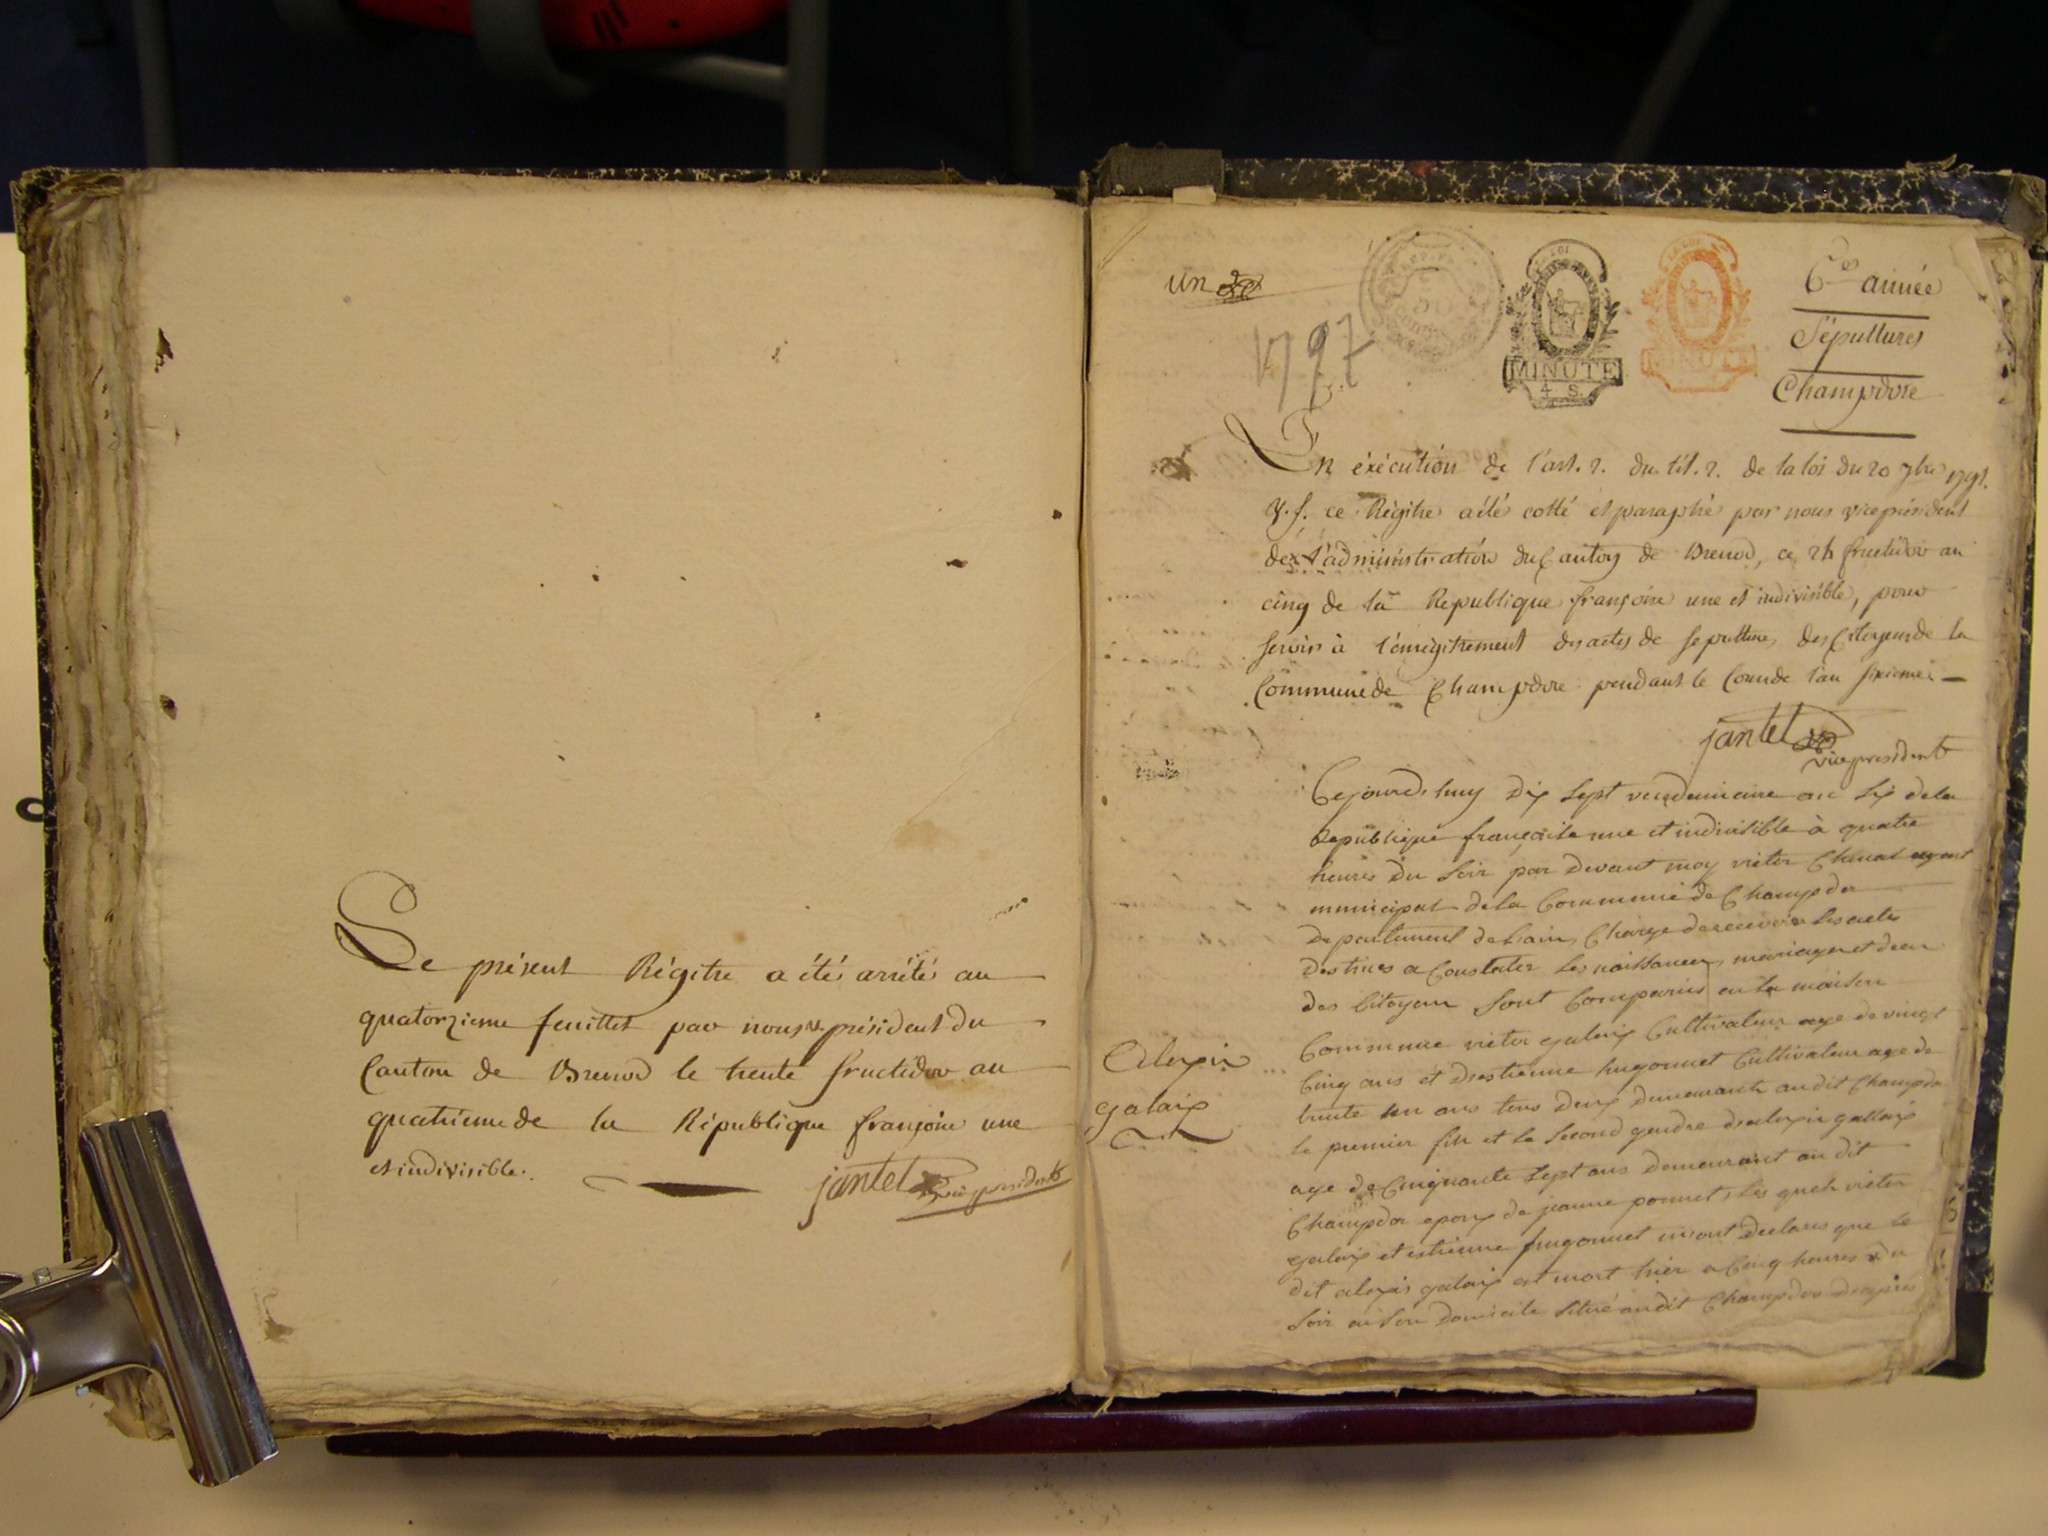 Le présent Régitre a été arrété au
quatorzieme feuillet par nous v. président du
Canton de Brenod le trente fructidor an
quatrieme de la République françoise une
et indivisible.
jantet vice president
un
1797
MINUTE
4 S.
MINUTE
6.e année
Sépultures
Champdore
En éxécution de l'art. 2. du tit. 2. de la loi du 20 7bre 179
V. S. ce Régitre a été cotté et paraphé par nous vice président
de l'administration du Canton de Brenod, ce 24 fructidor an
cinq de la République françoise une et indivisible, pour
servir à l'enrégitrement des actes de sepulture, des Citoyens de la
Commune de Champdore pendant le Cour de l'an sixieme
jantet
vice president
Cejourdhuy dix sept vendemiaire an six de la
Republique française une et indivisible à quatre
heures du soir par devant moy victor Chanal agent
municipal de la Commune de Champdor
departement de Lain, Charge de recevoir les actes
destines a Constater les naissances, mariages et deces
des Citoyens sont Comparus en la maison
Commune victor galaix Cultivateur age de vingt
Cinq ans et destienne hugonnet Cultivateur age de
trente un ans tous deux demeurants audit Champdor
le premier fils et le second gendre dalexis gallaix
age de Cinquante sept ans demeurant au dit
Champdor epoux de jeanne ponnet, les quels victor
galaix et estienne hugonnet mont declares que le
dit alexis galaix est mort hier a Cinq heures du
soir en son domicile situé audit Champdor dapres
Alexis
galaix